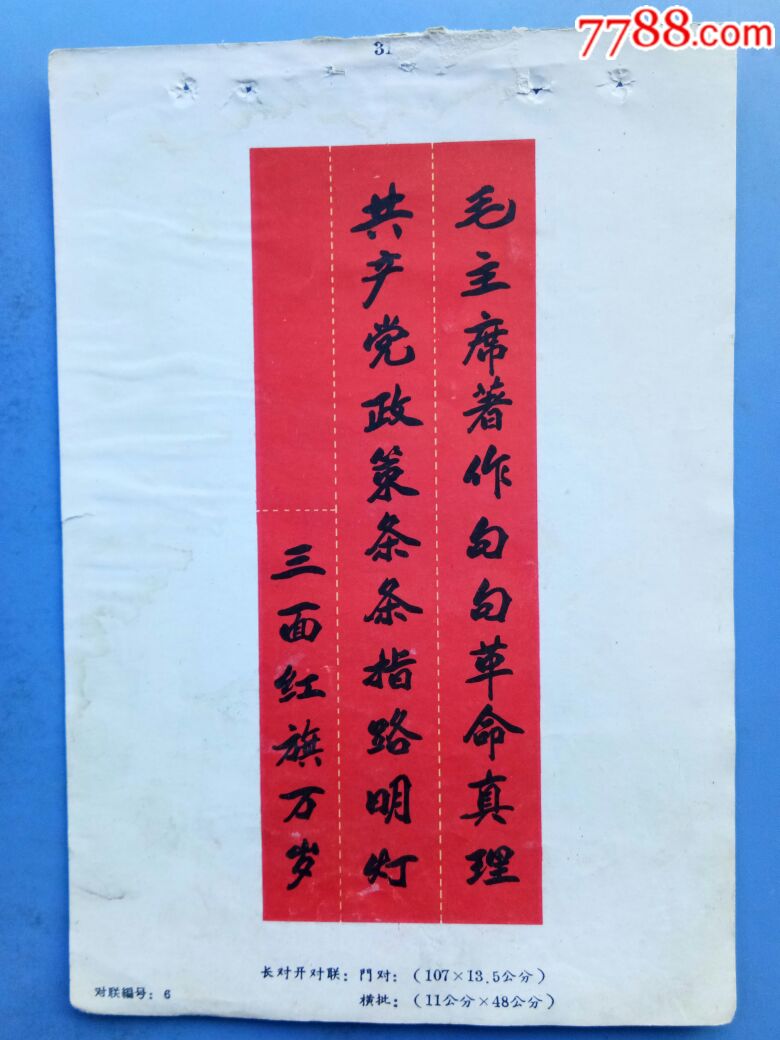 7788.com
31
毛主席著作句句革命真理
共产党政策条条指路明灯
三面红旗万岁
长对开对联：門对：（107×13.5公分）
横批：（11公分×48公分）
对联編号：6